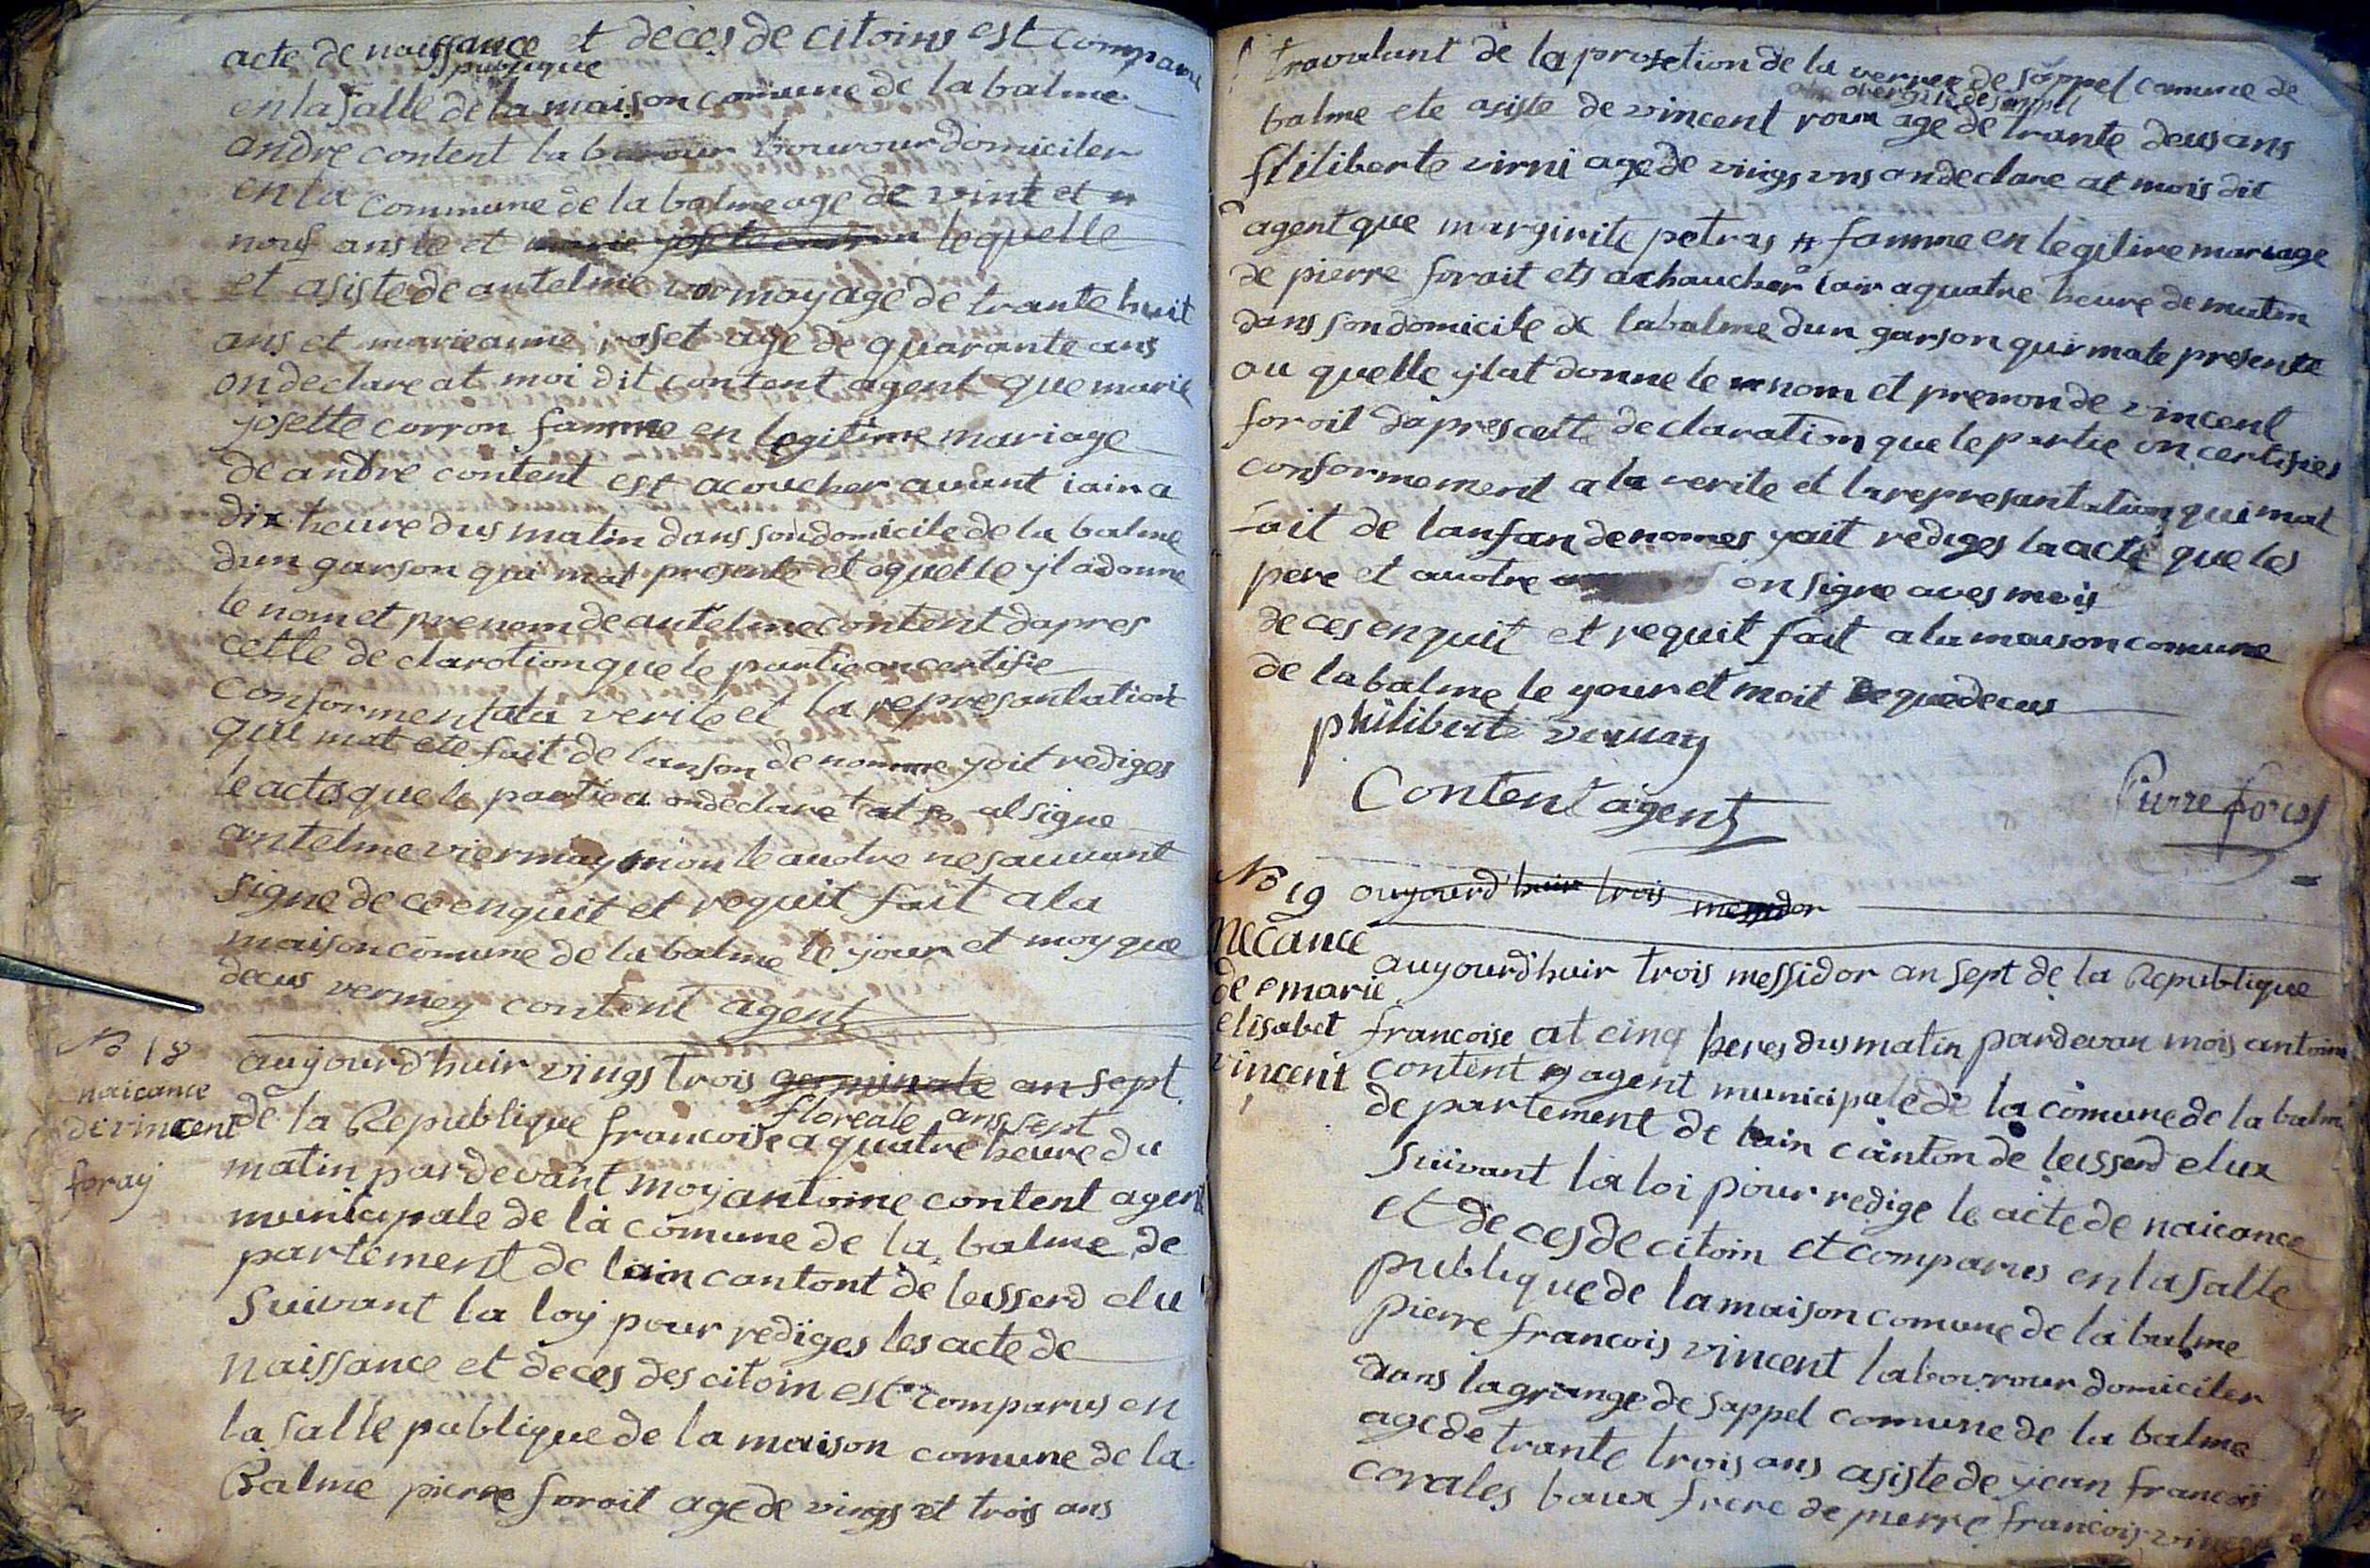 acte de naissance et deces de citoins est comparu
publique
en la salle de la maison comune de la balme
andre content la bourour domiciler
en la commune de la balme age de vint et
nouf ans le et marie josete corron lequelle
et asiste de antelme vormay age de trante huit
ans et marieanne roset age de quarante ans
on declare at moi dit content agent que marie
josette corron famme en legitime mariage
de andre content est acoucher avant iair a
dix heure dus matin dans son domicile de la balme
dun garson qui mat presente et oquelle yl a donne
le nom et prenom de antelme content dapres
cette declarotion que le partie on certifie
conforment ala verite et la represantation
qui mat ete fait de lanfan denomme yait rediges
le acte que le partie a on declare at al signe
antelme viermay mon le audre ne sauvant
signe de ce enquit et requit fait a la
maison comune de la balme le your et moy que
decus vermey content agent
No 18
naicance
de vincent
foray
auyourd'huir vings trois germinale an sept
floreale ans sept
de la Republique francoise a quatre heure du
matin par devant moy antoine content agent
municipale de la comune de la balme de
partement de lain cantont de leisserd elu
suivant la loy pour rediges les acte de
naissance et deces des citoin est comparus en
la salle publique de la maison comune de la
Balme pierre foroit age de vings et trois ans
travalant de la profetion de la verrer de sappel comune de
overrie de sappel
balme ete asiste de vincent roux age de trante deus ans
filiberte virni age de vings uns on declare at mois dit
agent que margirite petras famme en legitime mariage
de pierre forait ets achaucher iair a quatre heure de matin
dans son domicile de labalme dun garson qui mate presente
au quelle ylat donne le nom et prenon de vincent
foroit dapres cette declaration que le partie on certifies
conformement a la verite et la represantation qui mat
fait de lanfan denomes yait rediges la acte que les
pere et auotre on signe aves mois
de ces enquit et requit fait a la maison comune
de labalme le your et moit que decus
philiberte vernay
Content agent
Pierre foray
No 19 auyourd'huir trois messidor
necance
de marie
elisabet
vincent
auyourd'huir trois messidor an sept de la Republique
francoise at cinq heres dus matin pardevan mois antoine
content agent municipale de la comune de la balme
departement de lain canton de leisserd elux
suivant la loi pour redige le acte de naicance
et deces de citoin et comparus en la salle
publique de la maison comune de la balme
pierre francois vincent labourour domiciler
dans lagrange de sappel comune de la balme
age de trante trois ans asiste de yean francois
corales baux frere de pierre francois vincent